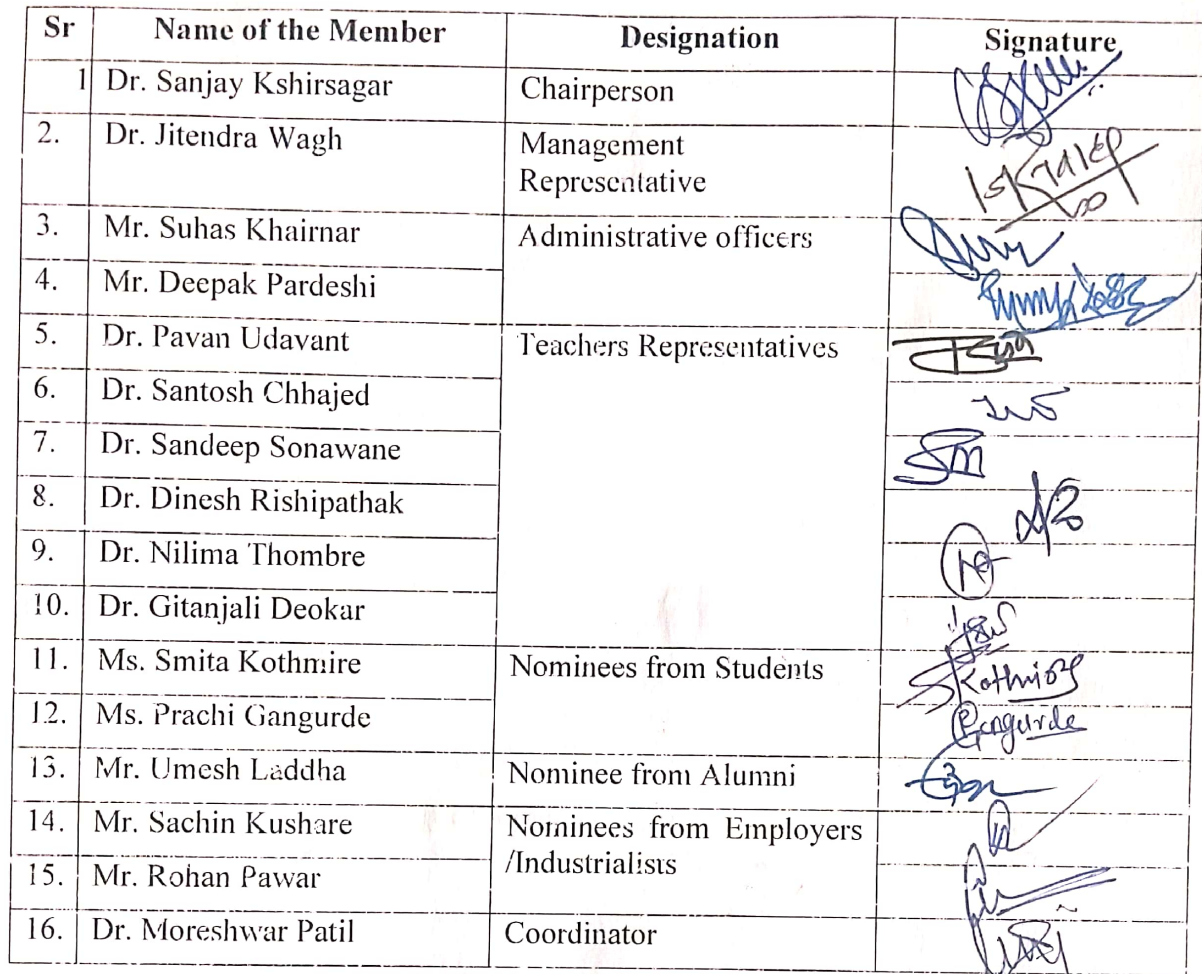 Sr Name of the Member Designation Signature
1 Dr. Sanjay Kshirsagar Chairperson
2. Dr. Jitendra Wagh Management
Representative
3. Mr. Suhas Khairnar Administrative officers
4. Mr. Deepak Pardeshi
5. Dr. Pavan Udavant Teachers Representatives
6. Dr. Santosh Chhajed
7. Dr. Sandeep Sonawane
8. Dr. Dinesh Rishipathak
9. Dr. Nilima Thombre
10. Dr. Gitanjali Deokar
11. Ms. Smita Kothmire Nominees from Students
12. Ms. Prachi Gangurde
13. Mr. Umesh Laddha Nominee from Alumni
14. Mr. Sachin Kushare Nominees from Employers
/Industrialists
15. Mr. Rohan Pawar
16. Dr. Moreshwar Patil Coordinator